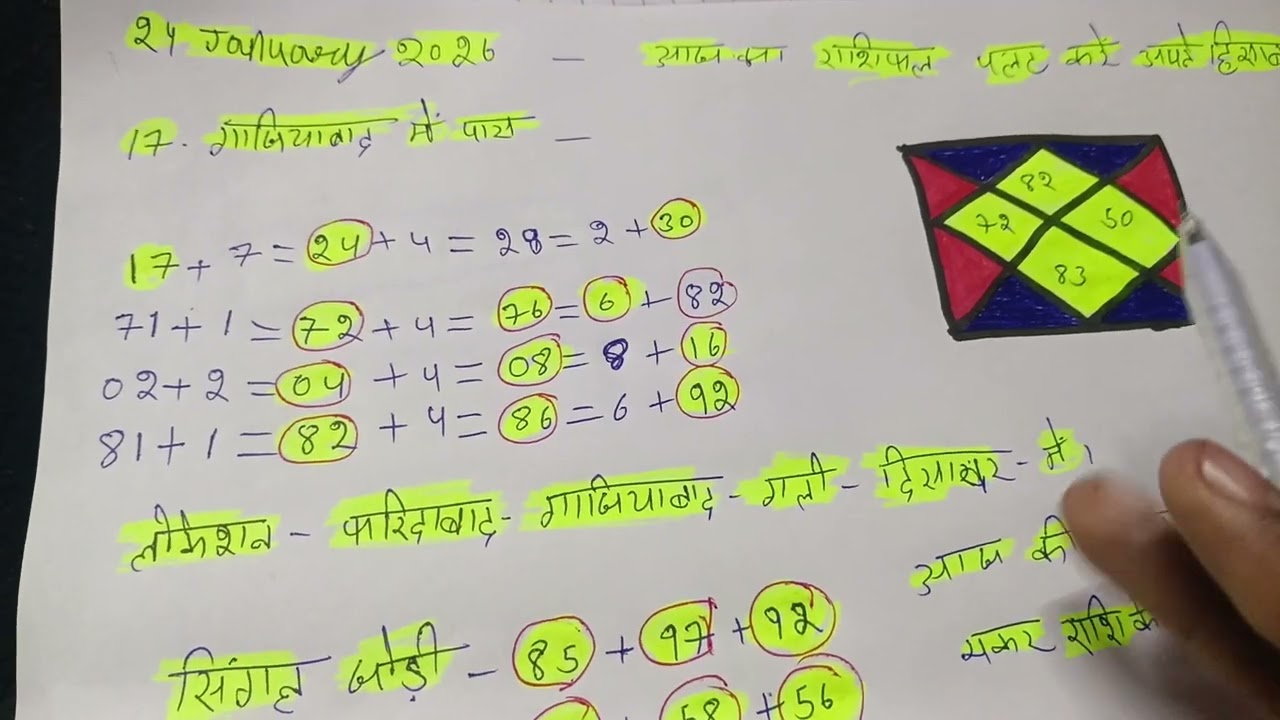 24 January 2026 — आज का राशिफल पलट करें अपने हिसाब
17. गाजियाबाद में पास —
17 + 7 = 24 + 4 = 28 = 2 + 30
71 + 1 = 72 + 4 = 76 = 6 + 82
02 + 2 = 04 + 4 = 08 = 8 + 16
81 + 1 = 82 + 4 = 86 = 6 + 92
82
72 50
83
लोकेशन - फरिदाबाद - गाजियाबाद - गली - दिसावर - में,
आज की
चक्कर राशि के
सिंगल जोड़ी - 85 + 97 + 92
58 + 56